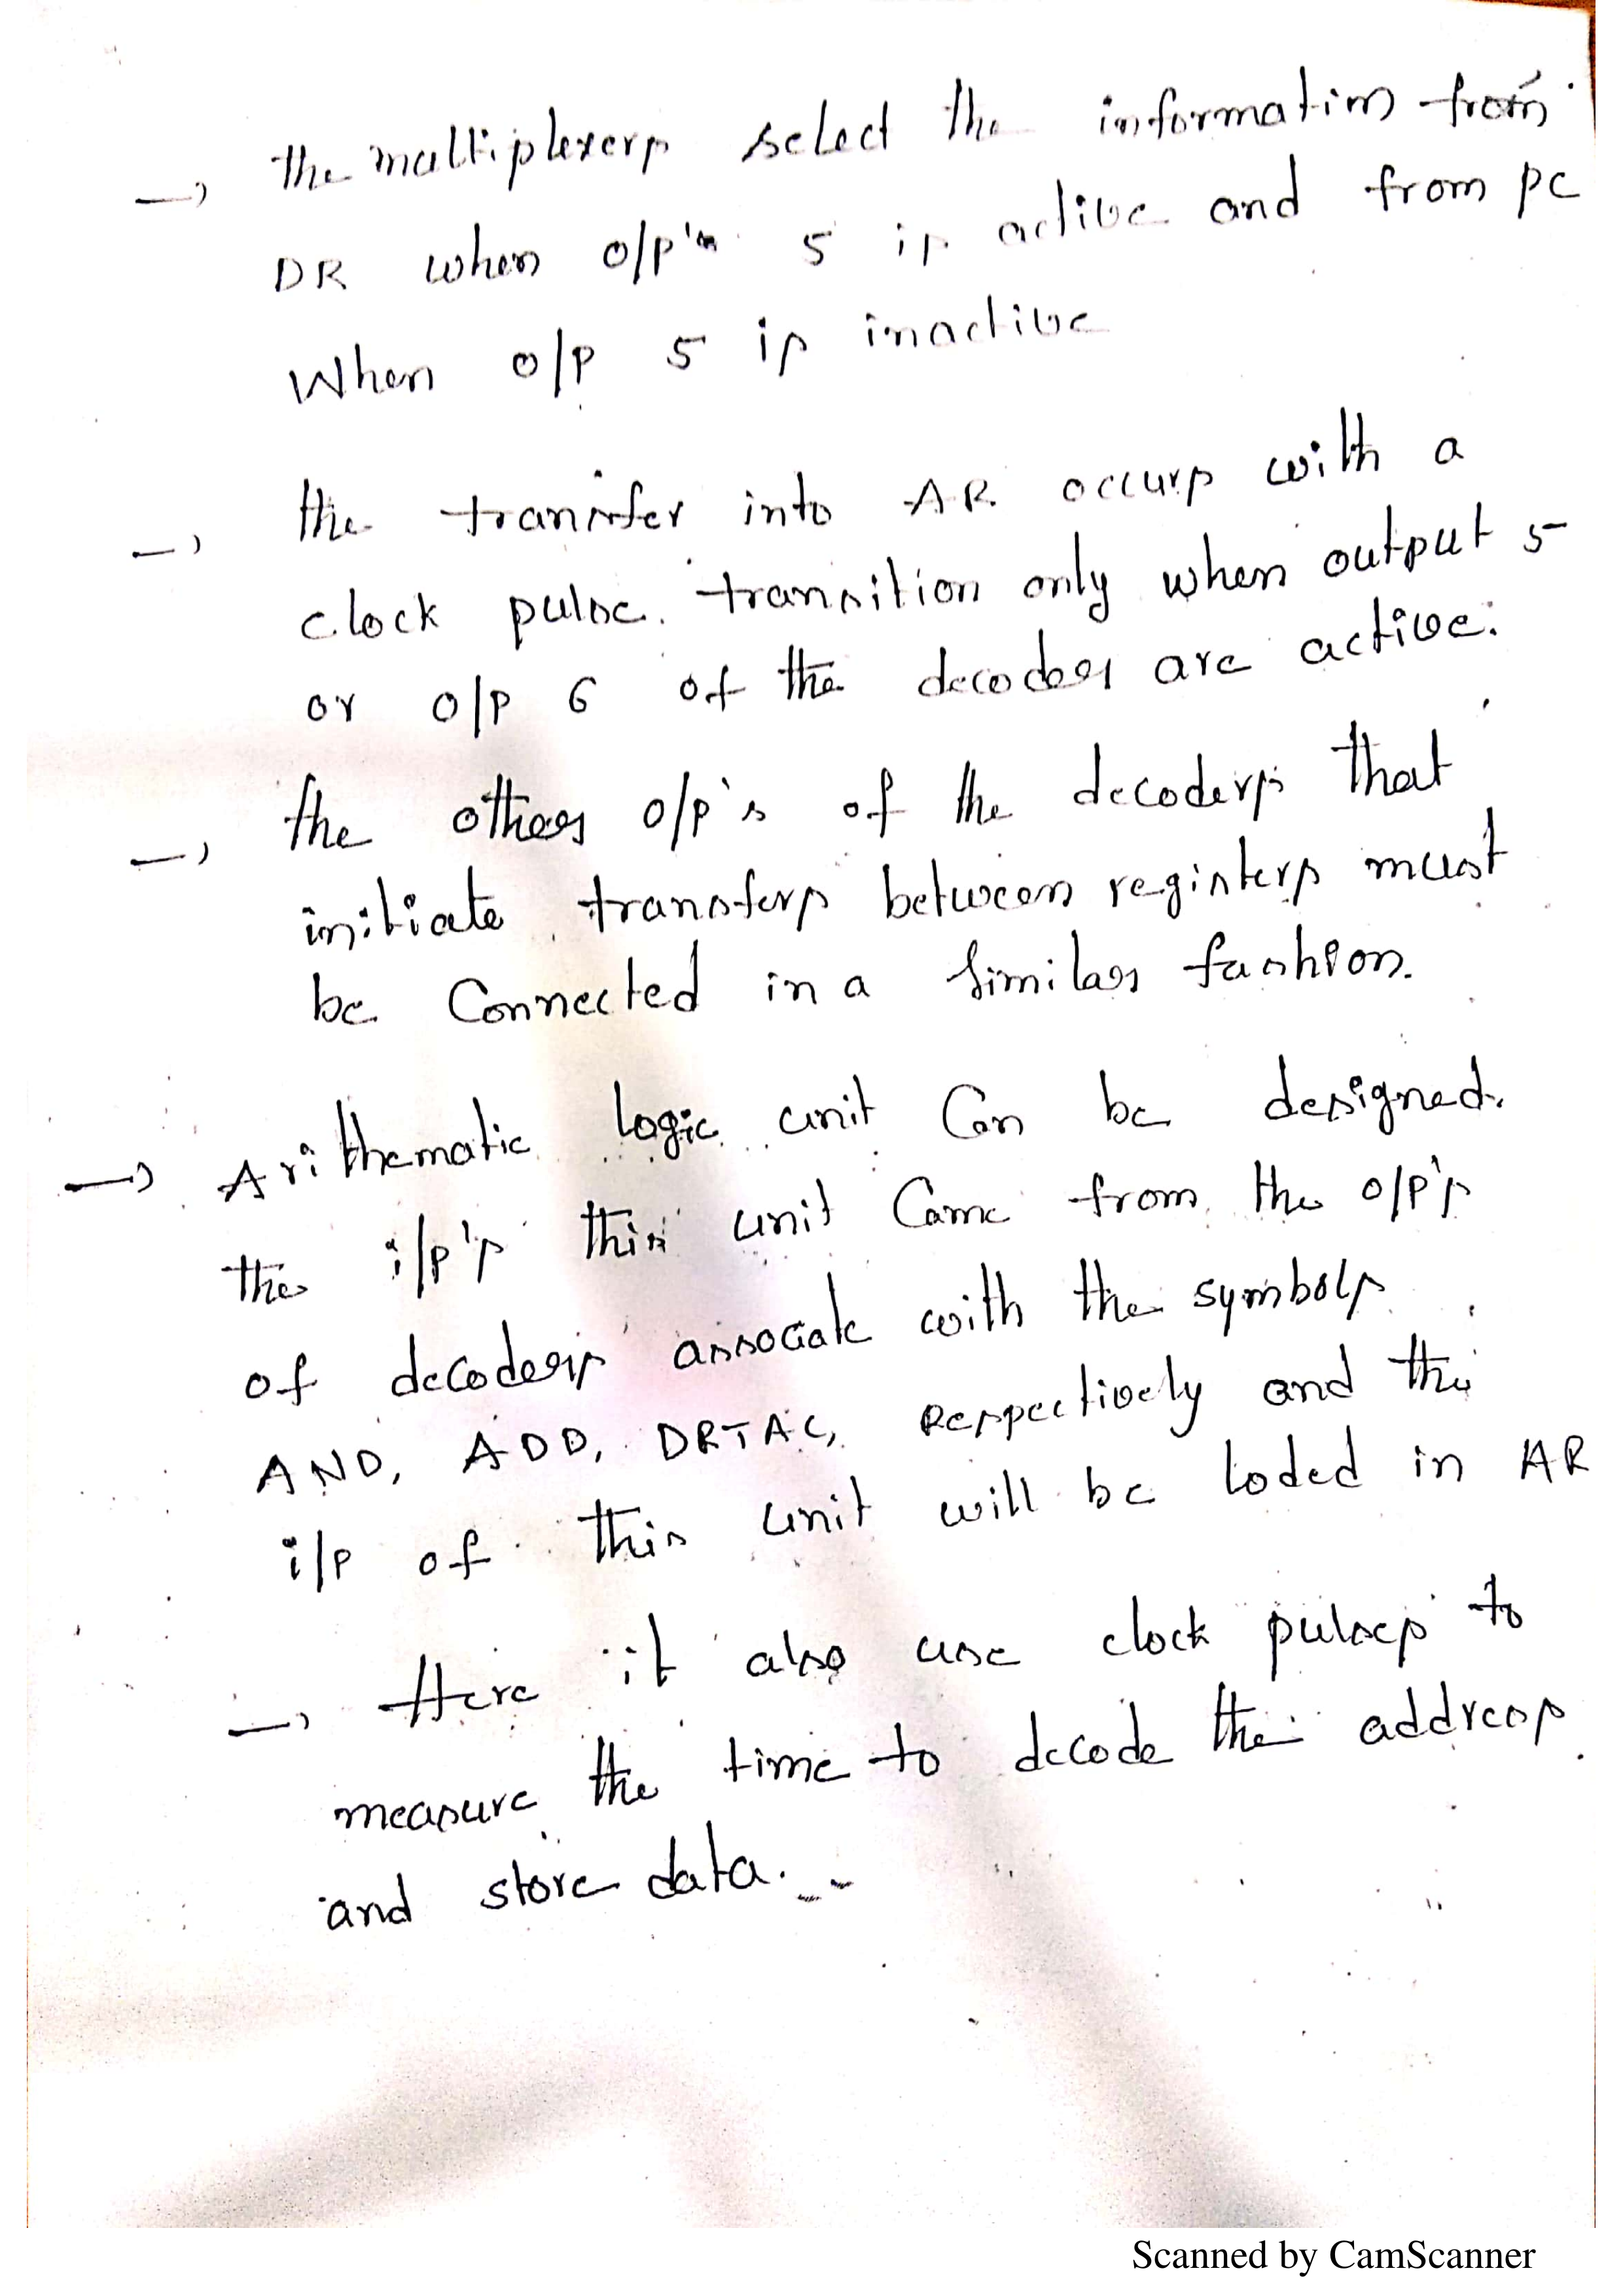 → the multiplexers select the information from
DR when o/p's 5 is active and from PC
When o/p 5 is inactive
→ the transfer into AR occurs with a
clock pulse transition only when output 5
or o/p 6 of the decoder are active.
→ the other o/p's of the decoders that
initiate transfers between registers must
be Connected in a Similar fashion.
→ Arithematic logic unit Can be designed.
the i/p's this unit Came from the o/p's
of decoders associate with the symbols
AND, ADD, DRTAC, Respectively and the
i/p of this unit will be loded in AR
→ Here it also use clock pulses to
measure the time to decode the address
and store data.
Scanned by CamScanner